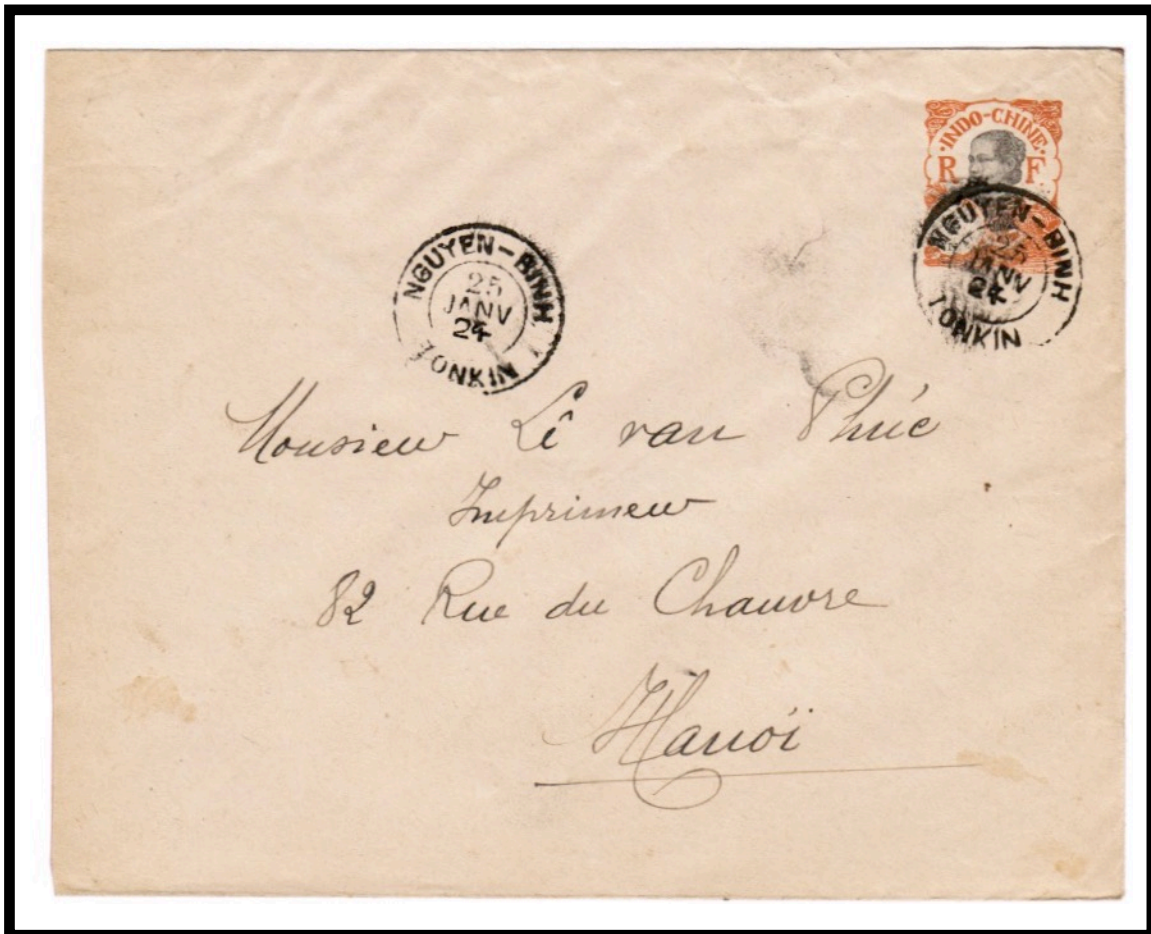 INDO-CHINE
R F
NGUYEN-BINH
25
JANV
24
TONKIN
NGUYEN-BINH
25
JANV
24
TONKIN
Monsieur Lê van Phúc
Imprimeur
82 Rue du Chanvre
Hanoï